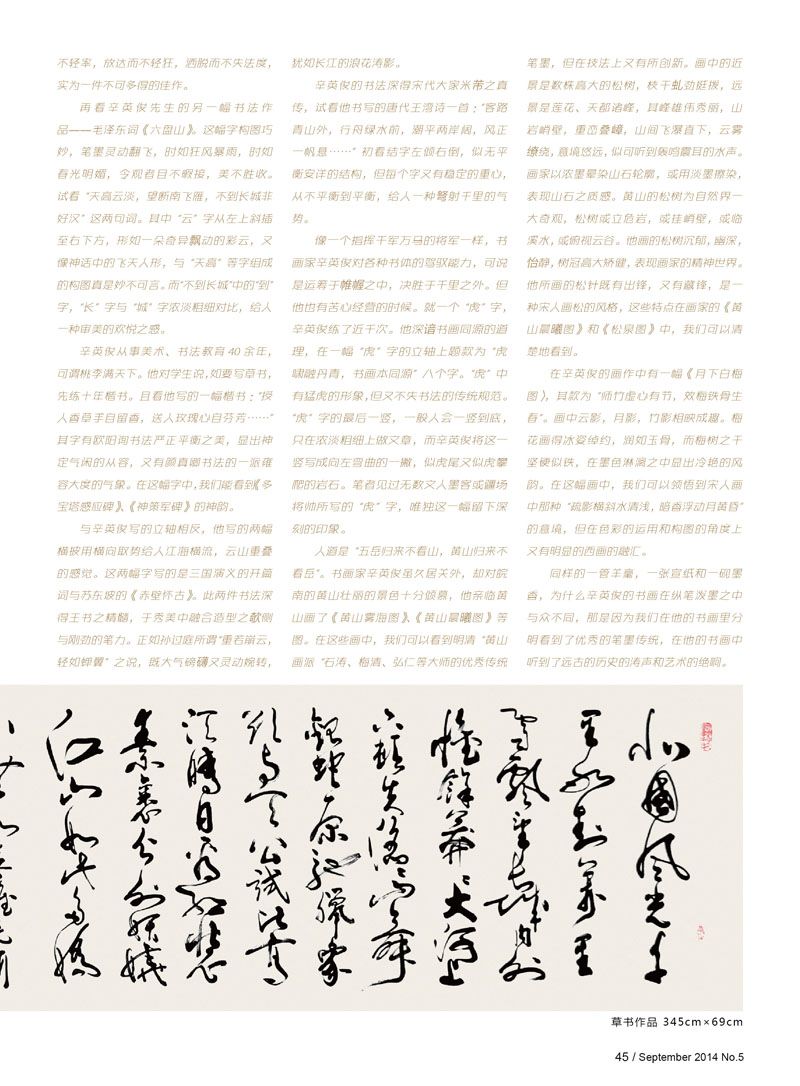 不轻率，放达而不轻狂，洒脱而不失法度，
实为一件不可多得的佳作。
再看辛英俊先生的另一幅书法作
品——毛泽东词《六盘山》。这幅字构图巧
妙，笔墨灵动翻飞，时如狂风暴雨，时如
春光明媚，令观者目不暇接，美不胜收。
试看“天高云淡，望断南飞雁，不到长城非
好汉”这两句词。其中“云”字从左上斜插
至右下方，形如一朵奇异飘动的彩云，又
像神话中的飞天人形，与“天高”等字组成
的构图真是妙不可言。而“不到长城”中的“到”
字，“长”字与“城”字浓淡粗细对比，给人
一种审美的欢悦之感。
辛英俊从事美术、书法教育 40 余年，
可谓桃李满天下。他对学生说，如要写草书，
先练十年楷书。且看他写的一幅楷书：“授
人香草手自留香，送人玫瑰心自芬芳……”
其字有欧阳询书法严正平衡之美，显出神
定气闲的从容，又有颜真卿书法的一派雍
容大度的气象。在这幅字中，我们能看到《多
宝塔感应碑》、《神策军碑》的神韵。
与辛英俊写的立轴相反，他写的两幅
横披用横向取势给人江海横流，云山重叠
的感觉。这两幅字写的是三国演义的开篇
词与苏东坡的《赤壁怀古》。此两件书法深
得王书之精髓，于秀美中融合造型之欹侧
与刚劲的笔力。正如孙过庭所谓“重若崩云，
轻如蝉翼”之说，既大气磅礴又灵动婉转，
犹如长江的浪花涛影。
辛英俊的书法深得宋代大家米芾之真
传，试看他书写的唐代王湾诗一首：“客路
青山外，行舟绿水前，潮平两岸阔，风正
一帆悬……”初看结字左倾右倒，似无平
衡安详的结构，但每个字又有稳定的重心，
从不平衡到平衡，给人一种弩射千里的气
势。
像一个指挥千军万马的将军一样，书
画家辛英俊对各种书体的驾驭能力，可说
是运筹于帷幄之中，决胜于千里之外。但
他也有苦心经营的时候。就一个“虎”字，
辛英俊练了近千次。他深谙书画同源的道
理，在一幅“虎”字的立轴上题款为“虎
啸融丹青，书画本同源”八个字。“虎”中
有猛虎的形象，但又不失书法的传统规范。
“虎”字的最后一竖，一般人会一竖到底，
只在浓淡粗细上做文章，而辛英俊将这一
竖写成向左弯曲的一撇，似虎尾又似虎攀
爬的岩石。笔者见过无数文人墨客或疆场
将帅所写的“虎”字，唯独这一幅留下深
刻的印象。
人道是“五岳归来不看山，黄山归来不
看岳”。书画家辛英俊虽久居关外，却对皖
南的黄山壮丽的景色十分倾慕，他亲临黄
山画了《黄山雾海图》、《黄山晨曦图》等
图。在这些画中，我们可以看到明清“黄山
画派”石涛、梅清、弘仁等大师的优秀传统
笔墨，但在技法上又有所创新。画中的近
景是数株高大的松树，枝干虬劲挺拔，远
景是莲花、天都诸峰，其峰雄伟秀丽，山
岩峭壁，重峦叠嶂，山间飞瀑直下，云雾
缭绕，意境悠远，似可听到轰鸣震耳的水声。
画家以浓墨晕染山石轮廓，或用淡墨擦染，
表现山石之质感。黄山的松树为自然界一
大奇观，松树或立危岩，或挂峭壁，或临
溪水，或俯视云谷。他画的松树沉郁，幽深，
怡静，树冠高大矫健，表现画家的精神世界。
他所画的松针既有出锋，又有藏锋，是一
种宋人画松的风格，这些特点在画家的《黄
山晨曦图》和《松泉图》中，我们可以清
楚地看到。
在辛英俊的画作中有一幅《月下白梅
图》，其款为“师竹虚心有节，效梅铁骨生
春”。画中云影，月影，竹影相映成趣。梅
花画得冰姿绰约，润如玉骨，而梅树之干
坚硬似铁，在墨色淋漓之中显出冷艳的风
韵。在这幅画中，我们可以领悟到宋人画
中那种“疏影横斜水清浅，暗香浮动月黄昏”
的意境，但在色彩的运用和构图的角度上
又有明显的西画的融汇。
同样的一管羊毫，一张宣纸和一砚墨
香，为什么辛英俊的书画在纵笔泼墨之中
与众不同，那是因为我们在他的书画里分
明看到了优秀的笔墨传统，在他的书画中
听到了远古的历史的涛声和艺术的绝响。
北国风光千
里冰封万里
雪飘望长城内外
惟余莽莽大河上
下顿失滔滔山舞
银蛇原驰腊象
欲与天公试比高
须晴日看红装
素裹分外妖娆
江山如此多娇
草书作品 345cm×69cm
45 / September 2014 No.5